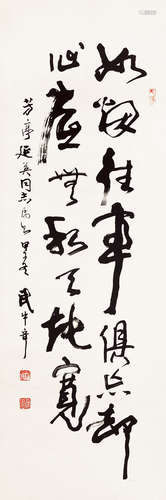 如烟往事俱忘却
心底無私天地寬
芳亭延英同志屬 甲子冬 武中奇